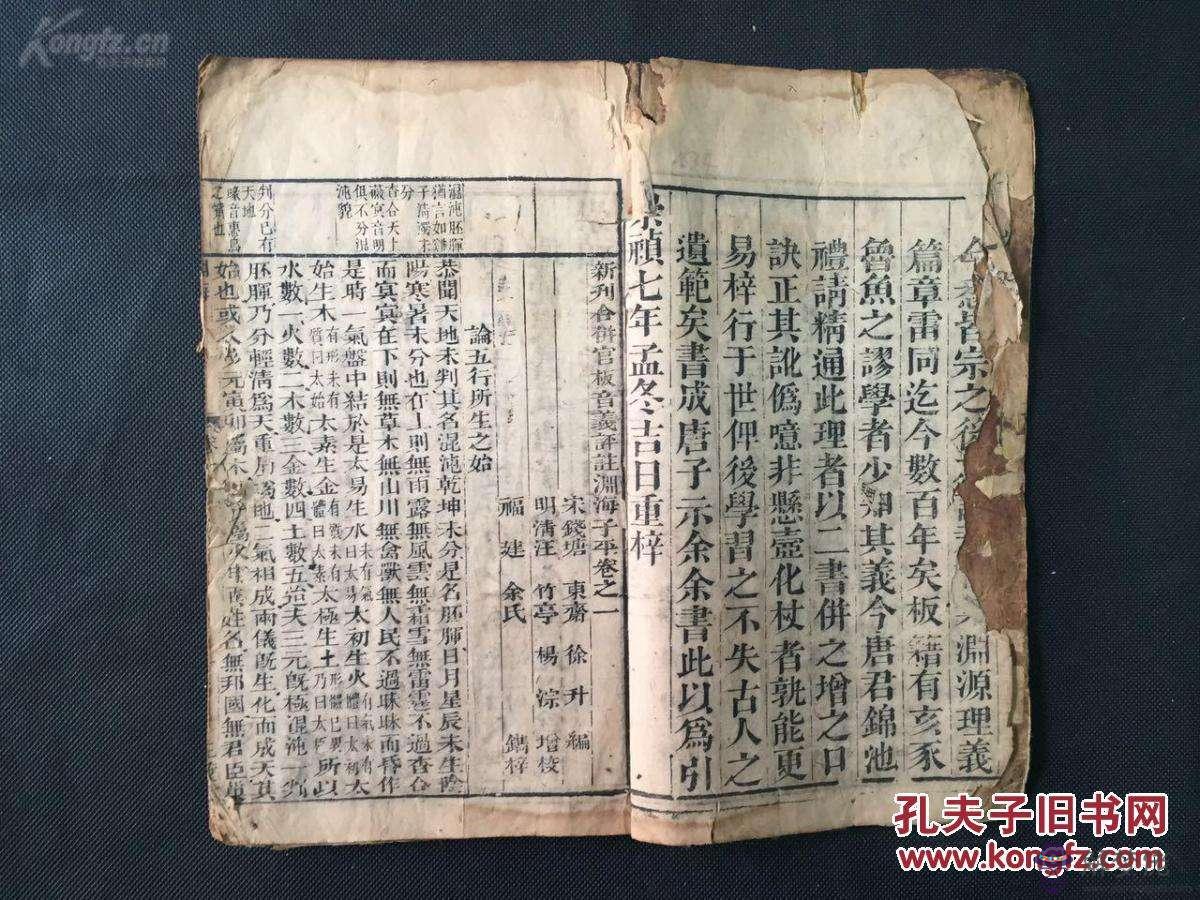 Kongfz.cn
淵源理義
篇章雷同迄今數百年矣板籍有亥豕
魯魚之謬學者少朙其義今唐君錦池
禮請精通此理者以二書併之增之口
訣正其訛僞噫非懸壺化杖者孰能更
易梓行于世俾後學習之不失古人之
遺範矣書成唐子示余余書此以爲引
崇禎七年孟冬吉日重梓
新刊合併官板音義評註淵海子平卷之一
宋錢塘 東齋 徐升 編
明清江 竹亭 楊淙 增校
福建 余氏 鐫梓
論五行所生之始
恭聞天地未判其名混沌乾坤未分是名胚腪日月星辰未生陰
陽寒暑未分也在上則無雨露無風雲無霜雪無雷霆不過杳合
而冥冥在下則無草木無山川無禽獸無人民不過昧昧而昏作
是時一氣盤中結於是太易生水太初生火太
始生木太素生金太極生土所以
水數一火數二木數三金數四土數五迨夫三元既極混沌一判
胚腪乃分輕清爲天重濁爲地二氣相成兩儀既生化而成天其
始也或
姓名無邦國無君臣
混沌胚腪
猶言如雞
子清濁未
分
杳合天上
俱不分混
沌貌
判分已有
天地
孔夫子旧书网
www.kongfz.com